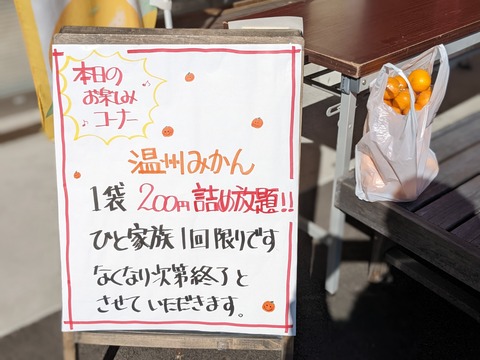 本日の
お楽しみ
コーナー
温州みかん
1袋 200円 詰め放題!!
ひと家族1回限りです
なくなり次第終了と
させていただきます。